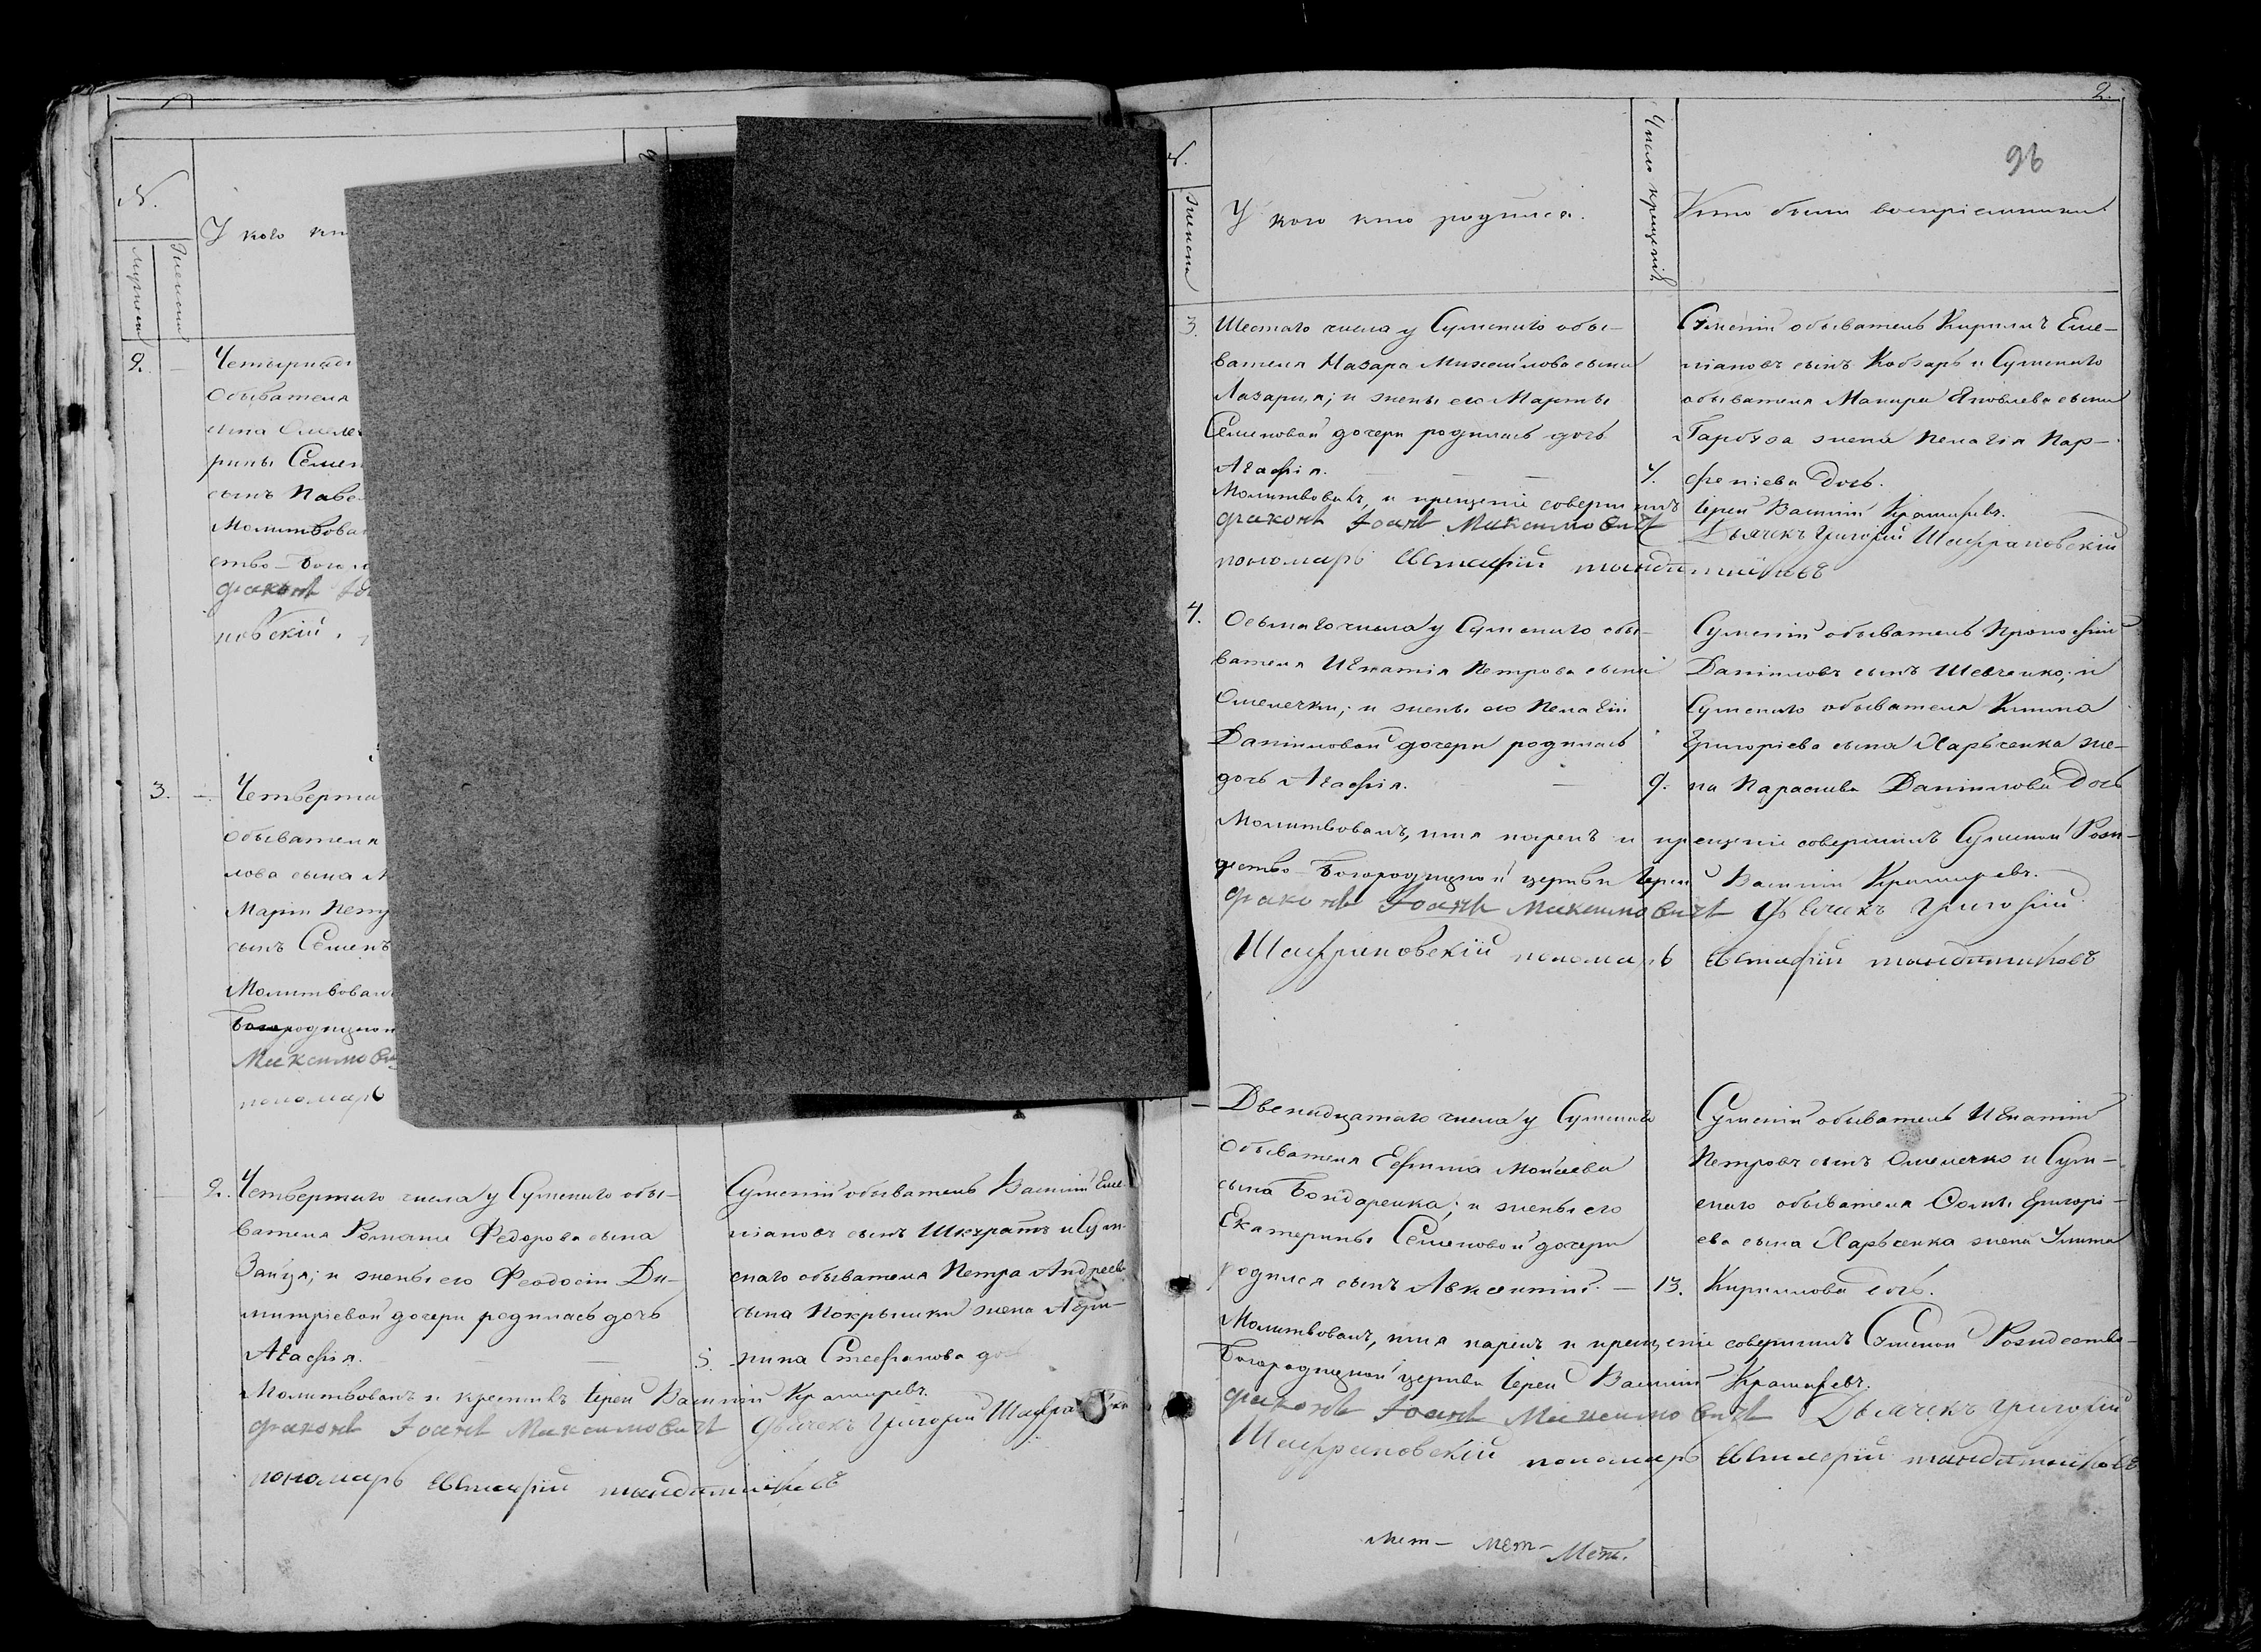 №.
У кого кт
Мужеска
Женска
2.
Четырнадц
Обывателя
сына Омеле
рины Семен
сынъ Паве
Молитвова
ство-Бого
диаконъ Іо
новскій.
3.
Четверта
обывателя
лова сына
Маріи Пет
сынъ Семенъ
Молитвовалъ
Богородицкой
Максимови
пономарь
2. Четвертаго числа у Сумскаго обы-
вателя Романа Федорова сына
Зайця; и жены его Феодосіи Ди-
митріевой дочери родилась дочь
Агафія. 5.
Сумскій обыватель Василій Еме-
ліановъ сынъ Шкуратъ и Сум-
скаго обывателя Петра Андреев
сына Покрышки жена Агри-
пина Стефанова до
Молитвовалъ и крестилъ Іерей Василій Крамаревъ.
диаконъ Іоанъ Максимовичъ Дьячекъ Григорій Шафрановскі
пономарь Евстафій
2.
96
№.
Женска
У кого кто родился.
Число крещенія
Кто были воспріемники
3. Шестаго числа у Сумскаго обы-
вателя Назара Михайлова сына
Лазарця; и жены его Марты
Семеновой дочери родилась дочь
Агафія. 7.
Сумскій обыватель Кирилъ Еме-
ліановъ сынъ Кобзарь и Сумскаго
обывателя Макара Яковлева сына
Гарбуза жена Пелагія Пар-
феніева дочь.
Молитвовалъ, и крещеніе совершилъ Іерей Василій Крамаревъ.
диаконъ Іоанъ Максимовичъ Дьячекъ Григорій Шафрановскій
пономарь Евстафій
4. Осьмаго числа у Сумскаго обы-
вателя Игнатія Петрова сына
Омелечки; и жены его Пелагіи
Даніиловой дочери родилась
дочь Агафія. 9.
Сумскій обыватель Прокофій
Даніиловъ сынъ Шевченко; и
Сумскаго обывателя Климa
Григоріева сына Харьченка же-
на Параскева Даніилова дочь
Молитвовалъ, имя нарекъ и крещеніе совершилъ Сумской Рож-
дество-Богородицкой церкви Іерей Василій Крамаревъ.
диаконъ Іоанъ Максимовичъ Дьячекъ Григорій
Шафрановскій пономарь Евстафій
Двенадцатаго числа у Сумскаго
обывателя Ефима Моисеева
сына Бондаренка; и жены его
Екатерины Семеновой дочери
родился сынъ Авксентій. — 13.
Сумскій обыватель Игнатій
Петровъ сынъ Омелечко и Сум-
скаго обывателя Фомы Григорі-
ева сына Харьченка жена Улита
Кириллова дочь.
Молитвовалъ, имя нарекъ и крещеніе совершилъ Сумской Рождество-
Богородицкой церкви Іерей Василій Крамаревъ.
диаконъ Іоанъ Максимовичъ Дьячекъ Григорій
Шафрановскій пономарь Евстафій